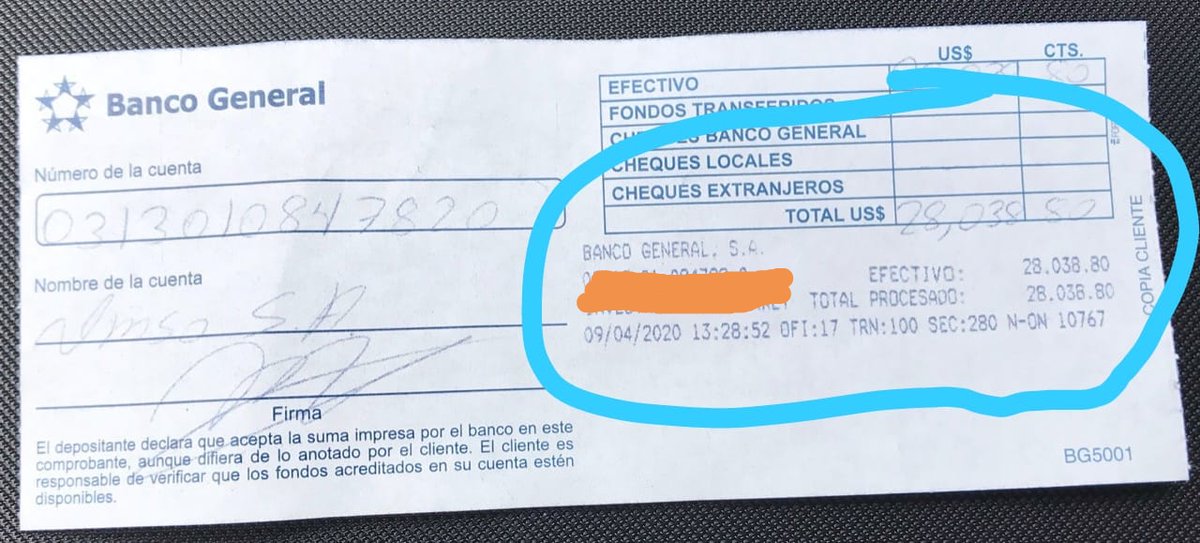 Banco General
Número de la cuenta
0313010847820
Nombre de la cuenta
S.A.
Firma
El depositante declara que acepta la suma impresa por el banco en este
comprobante, aunque difiera de lo anotado por el cliente. El cliente es
responsable de verificar que los fondos acreditados en su cuenta estén
disponibles.
US$ CTS.
EFECTIVO 80
FONDOS TRANSFERIDOS
CHEQUES BANCO GENERAL
CHEQUES LOCALES
CHEQUES EXTRANJEROS
TOTAL US$ 28,038 80
BANCO GENERAL, S.A.
EFECTIVO: 28.038.80
TOTAL PROCESADO: 28.038.80
09/04/2020 13:28:52 OFI:17 TRN:100 SEC:280 N-ON 10767
COPIA CLIENTE
BG5001